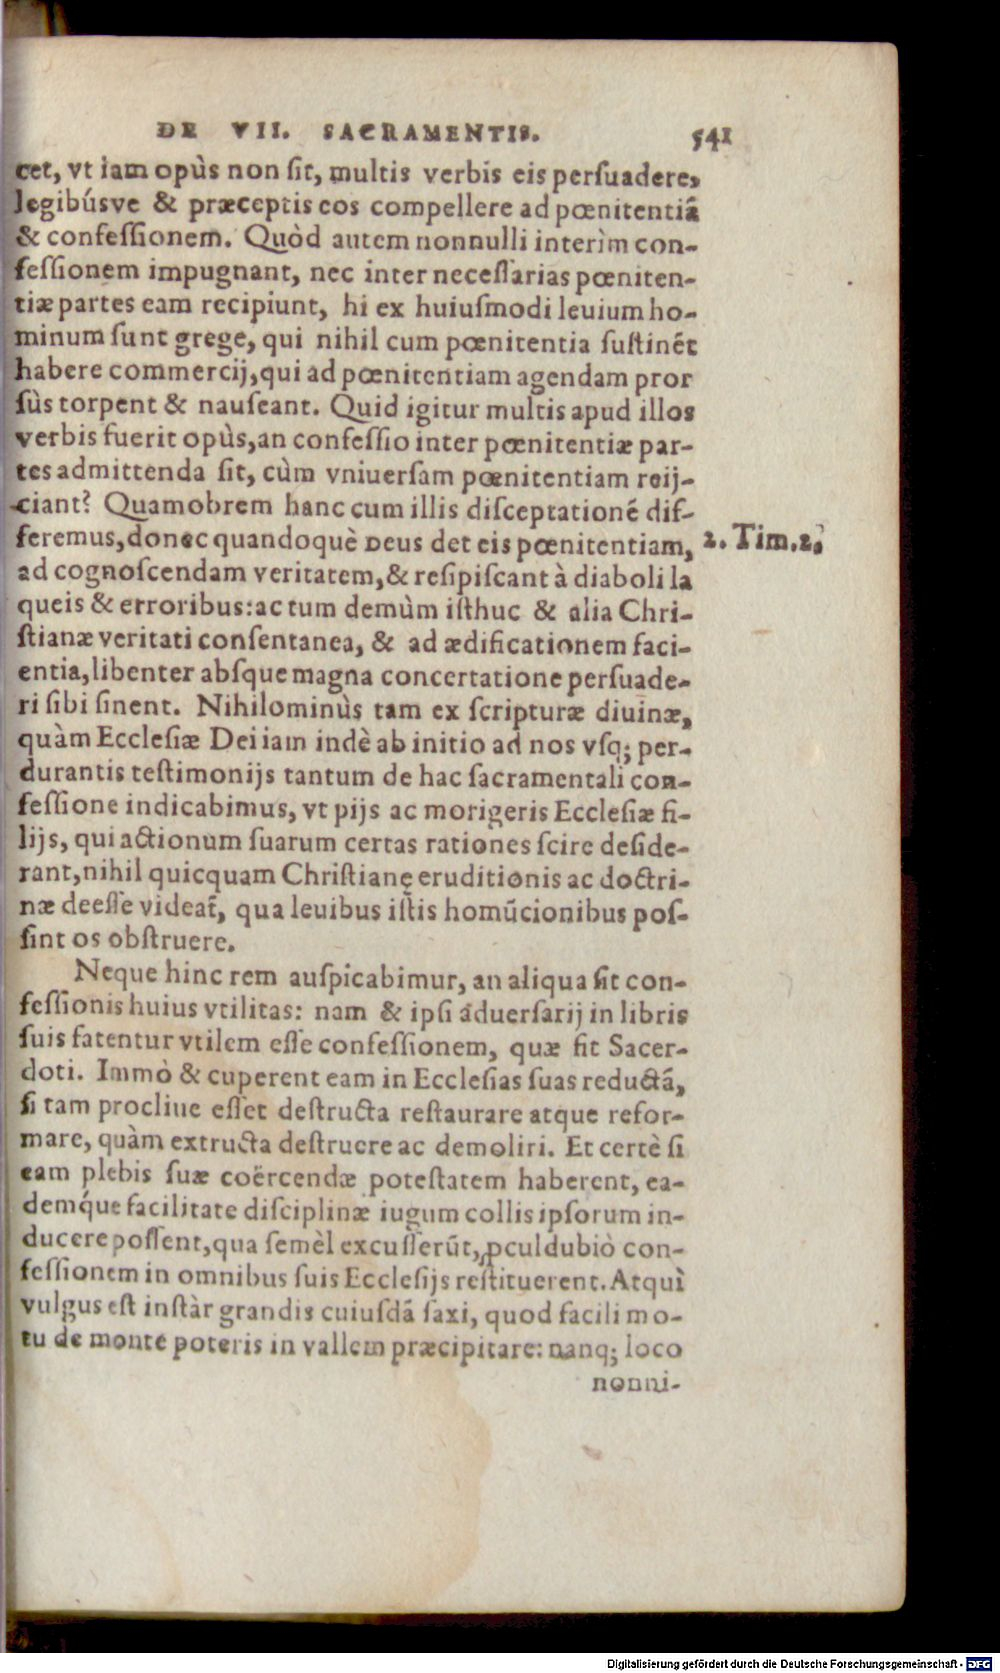 DE VII. SACRAMENTIS. 541
cet, vt iam opùs non sit, multis verbis eis persuadere,
legibúsve & præceptis eos compellere ad pœnitentiā
& confessionem. Quòd autem nonnulli interìm con-
fessionem impugnant, nec inter necessarias pœniten-
tiæ partes eam recipiunt, hi ex huiusmodi leuium ho-
minum sunt grege, qui nihil cum pœnitentia sustinēt
habere commercij, qui ad pœnitentiam agendam pror
sùs torpent & nauseant. Quid igitur multis apud illos
verbis fuerit opùs, an confessio inter pœnitentiæ par-
tes admittenda sit, cùm vniuersam pœnitentiam reij-
ciant? Quamobrem hanc cum illis disceptationē dif-
feremus, donec quandoquè Deus det eis pœnitentiam,
2. Tim. 2.
ad cognoscendam veritatem, & resipiscant à diaboli la
queis & erroribus: ac tum demùm isthuc & alia Chri-
stianæ veritati consentanea, & ad ædificationem faci-
entia, libenter absque magna concertatione persuade-
ri sibi sinent. Nihilominùs tam ex scripturæ diuinæ,
quàm Ecclesiæ Dei iam indè ab initio ad nos vsq; per-
durantis testimonijs tantum de hac sacramentali con-
fessione indicabimus, vt pijs ac morigeris Ecclesiæ fi-
lijs, qui actionum suarum certas rationes scire deside-
rant, nihil quicquam Christianę eruditionis ac doctri-
næ deesse videat̄, qua leuibus istis homūcionibus pos-
sint os obstruere.
Neque hinc rem auspicabimur, an aliqua sit con-
fessionis huius vtilitas: nam & ipsi aduersarij in libris
suis fatentur vtilem esse confessionem, quæ fit Sacer-
doti. Immò & cuperent eam in Ecclesias suas reductā,
si tam procliue esset destructa restaurare atque refor-
mare, quàm extructa destruere ac demoliri. Et certè si
eam plebis suæ coërcendæ potestatem haberent, ea-
demq́ue facilitate disciplinæ iugum collis ipsorum in-
ducere possent, qua semèl excusserūt, ꝓculdubiò con-
fessionem in omnibus suis Ecclesijs restituerent. Atquì
vulgus est instàr grandis cuiusdā saxi, quod facili mo-
tu de monte poteris in vallem præcipitare: nanq; loco
nonni-
Digitalisierung gefördert durch die Deutsche Forschungsgemeinschaft - DFG